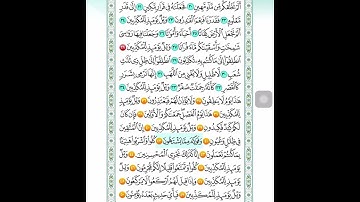 أَلَمْ نَخْلُقكُّم مِّن مَّآءٍ مَّهِينٍ ٢٠ فَجَعَلْنَٰهُ فِى قَرَارٍ مَّكِينٍ ٢١ إِلَىٰ قَدَرٍ
مَّعْلُومٍ ٢٢ فَقَدَرْنَا فَنِعْمَ ٱلْقَٰدِرُونَ ٢٣ وَيْلٌ يَوْمَئِذٍ لِّلْمُكَذِّبِينَ ٢٤
أَلَمْ نَجْعَلِ ٱلْأَرْضَ كِفَاتًا ٢٥ أَحْيَآءً وَأَمْوَٰتًا ٢٦ وَجَعَلْنَا فِيهَا رَوَٰسِىَ
شَٰمِخَٰتٍ وَأَسْقَيْنَٰكُم مَّآءً فُرَاتًا ٢٧ وَيْلٌ يَوْمَئِذٍ لِّلْمُكَذِّبِينَ ٢٨
ٱنطَلِقُوٓا۟ إِلَىٰ مَا كُنتُم بِهِۦ تُكَذِّبُونَ ٢٩ ٱنطَلِقُوٓا۟ إِلَىٰ ظِلٍّ ذِى ثَلَٰثِ
شُعَبٍ ٣٠ لَّا ظَلِيلٍ وَلَا يُغْنِى مِنَ ٱللَّهَبِ ٣١ إِنَّهَا تَرْمِى بِشَرَرٍ
كَٱلْقَصْرِ ٣٢ كَأَنَّهُۥ جِمَٰلَتٌ صُفْرٌ ٣٣ وَيْلٌ يَوْمَئِذٍ لِّلْمُكَذِّبِينَ ٣٤
هَٰذَا يَوْمُ لَا يَنطِقُونَ ٣٥ وَلَا يُؤْذَنُ لَهُمْ فَيَعْتَذِرُونَ ٣٦ وَيْلٌ يَوْمَئِذٍ
لِّلْمُكَذِّبِينَ ٣٧ هَٰذَا يَوْمُ ٱلْفَصْلِ جَمَعْنَٰكُمْ وَٱلْأَوَّلِينَ ٣٨ فَإِن كَانَ
لَكُمْ كَيْدٌ فَكِيدُونِ ٣٩ وَيْلٌ يَوْمَئِذٍ لِّلْمُكَذِّبِينَ ٤٠ إِنَّ ٱلْمُتَّقِينَ
فِى ظِلَٰلٍ وَعُيُونٍ ٤١ وَفَوَٰكِهَ مِمَّا يَشْتَهُونَ ٤٢ كُلُوا۟ وَٱشْرَبُوا۟ هَنِيٓـًٔۢا
بِمَا كُنتُمْ تَعْمَلُونَ ٤٣ إِنَّا كَذَٰلِكَ نَجْزِى ٱلْمُحْسِنِينَ ٤٤ وَيْلٌ
يَوْمَئِذٍ لِّلْمُكَذِّبِينَ ٤٥ كُلُوا۟ وَتَمَتَّعُوا۟ قَلِيلًا إِنَّكُم مُّجْرِمُونَ ٤٦ وَيْلٌ
يَوْمَئِذٍ لِّلْمُكَذِّبِينَ ٤٧ وَإِذَا قِيلَ لَهُمُ ٱرْكَعُوا۟ لَا يَرْكَعُونَ ٤٨
وَيْلٌ يَوْمَئِذٍ لِّلْمُكَذِّبِينَ ٤٩ فَبِأَىِّ حَدِيثٍۭ بَعْدَهُۥ يُؤْمِنُونَ ٥٠